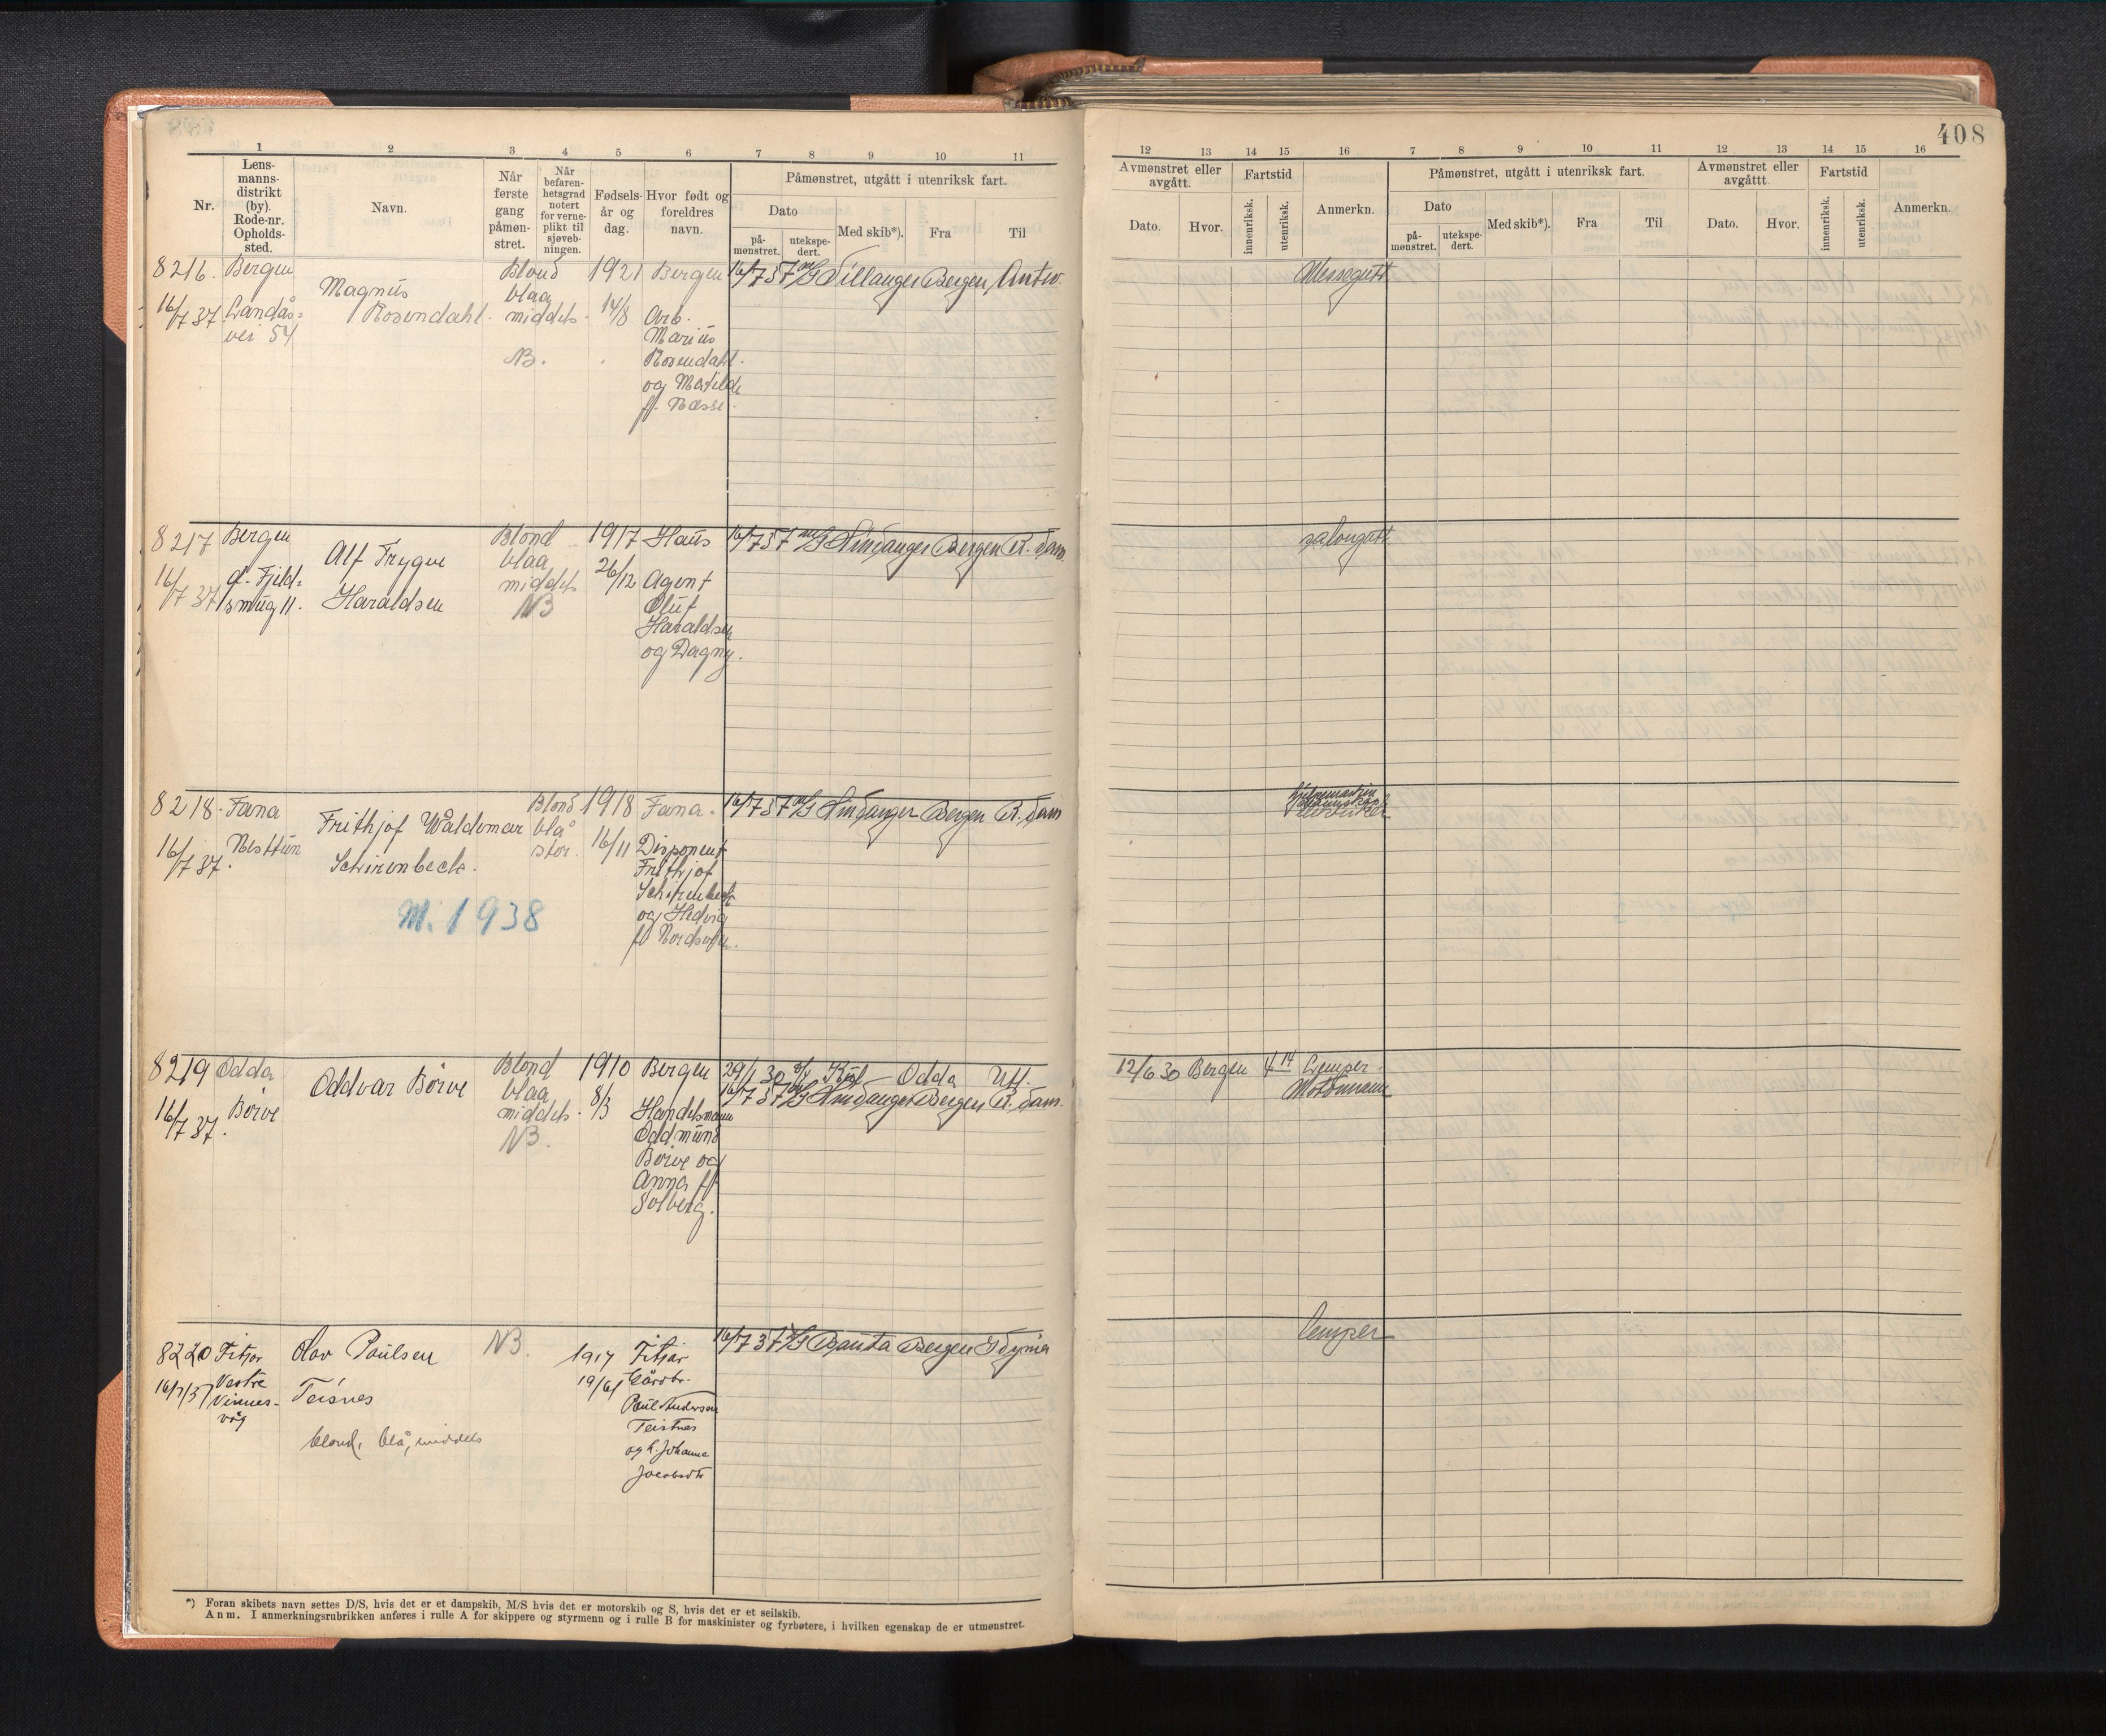 408
1 2 3 4 5 6 7 8 9 10 11
Nr.
Lens-
manns-
distrikt
(by).
Rode-nr.
Opholds-
sted.
Navn.
Når
første
gang
påmøn-
stret.
Når
befaren-
hetsgrad
notert
for verne-
plikt til
sjøveb-
ningen.
Fødsels-
år og
dag.
Hvor født og
foreldres
navn.
Påmønstret, utgått i utenriksk fart.
Dato
på-
mønstret.
utekspe-
dert.
Med skib*).
Fra
Til
12 13 14 15 16 7 8 9 10 11 12 13 14 15 16
Avmønstret eller
avgått.
Dato.
Hvor.
Fartstid
innenriksk.
utenriksk.
Anmerkn.
Påmønstret, utgått i utenriksk fart.
Dato
på-
mønstret.
utekspe-
dert.
Med skib*).
Fra
Til
Avmønstret eller
avgåttt.
Dato.
Hvor.
Fartstid
innenriksk.
utenriksk.
Anmerkn.
8216. Bergen
16/7 37 Landås-
vei 54
Magnus
Rosendahl.
Blond
blaa
middels.
NB.
1921
14/8
Bergen
Arb.
Marius
Rosendahl.
og Matilde
f. Næsse.
16/7 37 M/S Villanger Bergen Antw.
Messegutt
8217 Bergen
16/7 37
d. Fjeld-
smug 11.
Alf Trygve
Haraldsen
Blond
blaa
middels
NB
1917
26/12
Haus
Agent
Oluf
Haraldsen
og Dagny.
16/7 37 M/S Hindanger Bergen R. dam.
salongutt
8218. Fana
16/7 37.
Nesttun
Frithjof Waldemar
Schirenbeck.
M. 1938
Blond
blå
stor.
1918
16/11
Fana.
Disponent
Frithjof
Schirenbeck
og Hedvig
16/7 37 M/S Hindanger Bergen R. dam
8219 Odda
16/7 37.
Børve
Oddvar Børve
Blond
blaa
middels.
NB.
1910
8/3
Bergen
Handelsmann
Oddmund
Børve og
Anna f.
Solberg.
29/1 30 Odda Utl.
16/7 37 M/S Hindanger Bergen R. dam.
12/6 30 Bergen 4 14 Lemper.
Motormann
8220 Fitjar
16/7/37
Vestre
Vinnes-
våg
Olav Paulsen
Teisnes
blond, blå, middels
NB.
1917
19/6
Fitjar
Gårdbr.
Paul Andersen
Teistnes
og h. Johanne
Jacobsdtr
16/7 37 D/S Bauta Bergen Gdynia
lemper
*) Foran skibets navn settes D/S, hvis det er et dampskib, M/S hvis det er motorskib og S, hvis det er et seilskib.
Anm. I anmerkningsrubrikken anføres i rulle A for skippere og styrmenn og i rulle B for maskinister og fyrbøtere, i hvilken egenskap de er utmønstret.